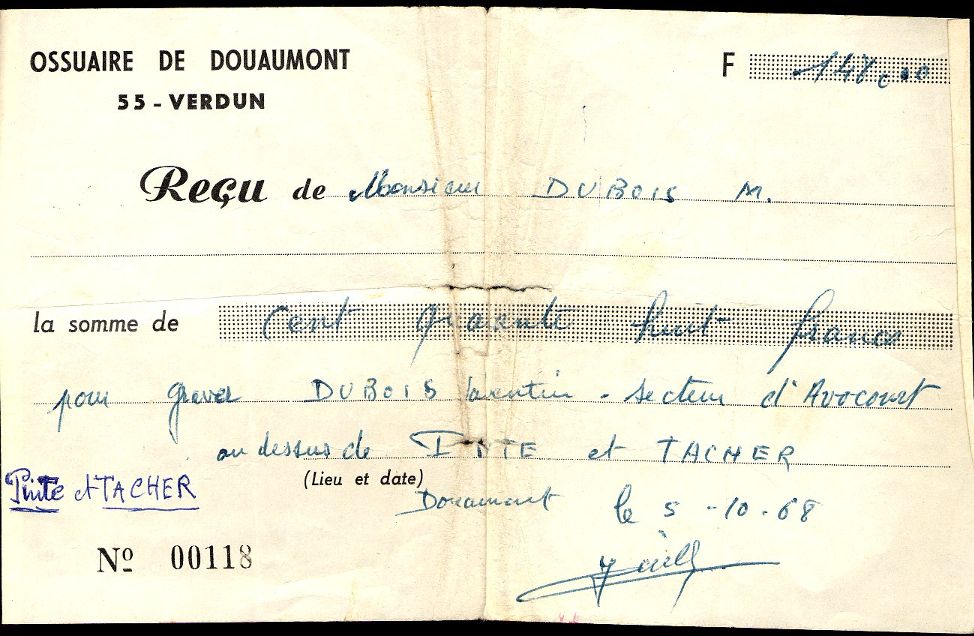 OSSUAIRE DE DOUAUMONT
55 - VERDUN
F
Reçu de Monsieur DUBOIS M.
la somme de Cent quarante huit francs
pour graver DUBOIS - secteur d'Avocourt
au dessus de PINTE et TACHER
Pinte et TACHER
(Lieu et date)
Douaumont le 5 - 10 - 68
Nº 00118